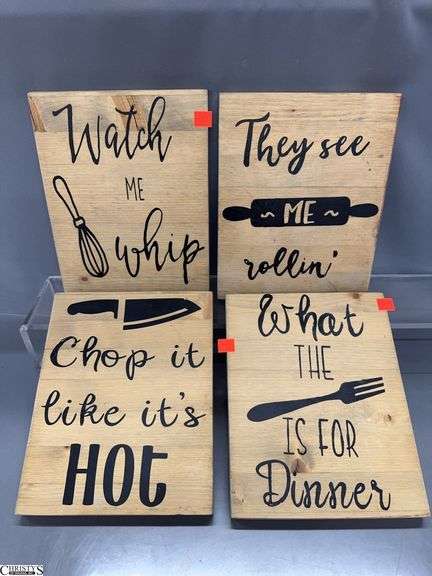 Watch
ME
whip
They see
~ ME ~
rollin'
Chop it
like it's
HOt
What
THE
IS FOR
Dinner
CHRISTY'S